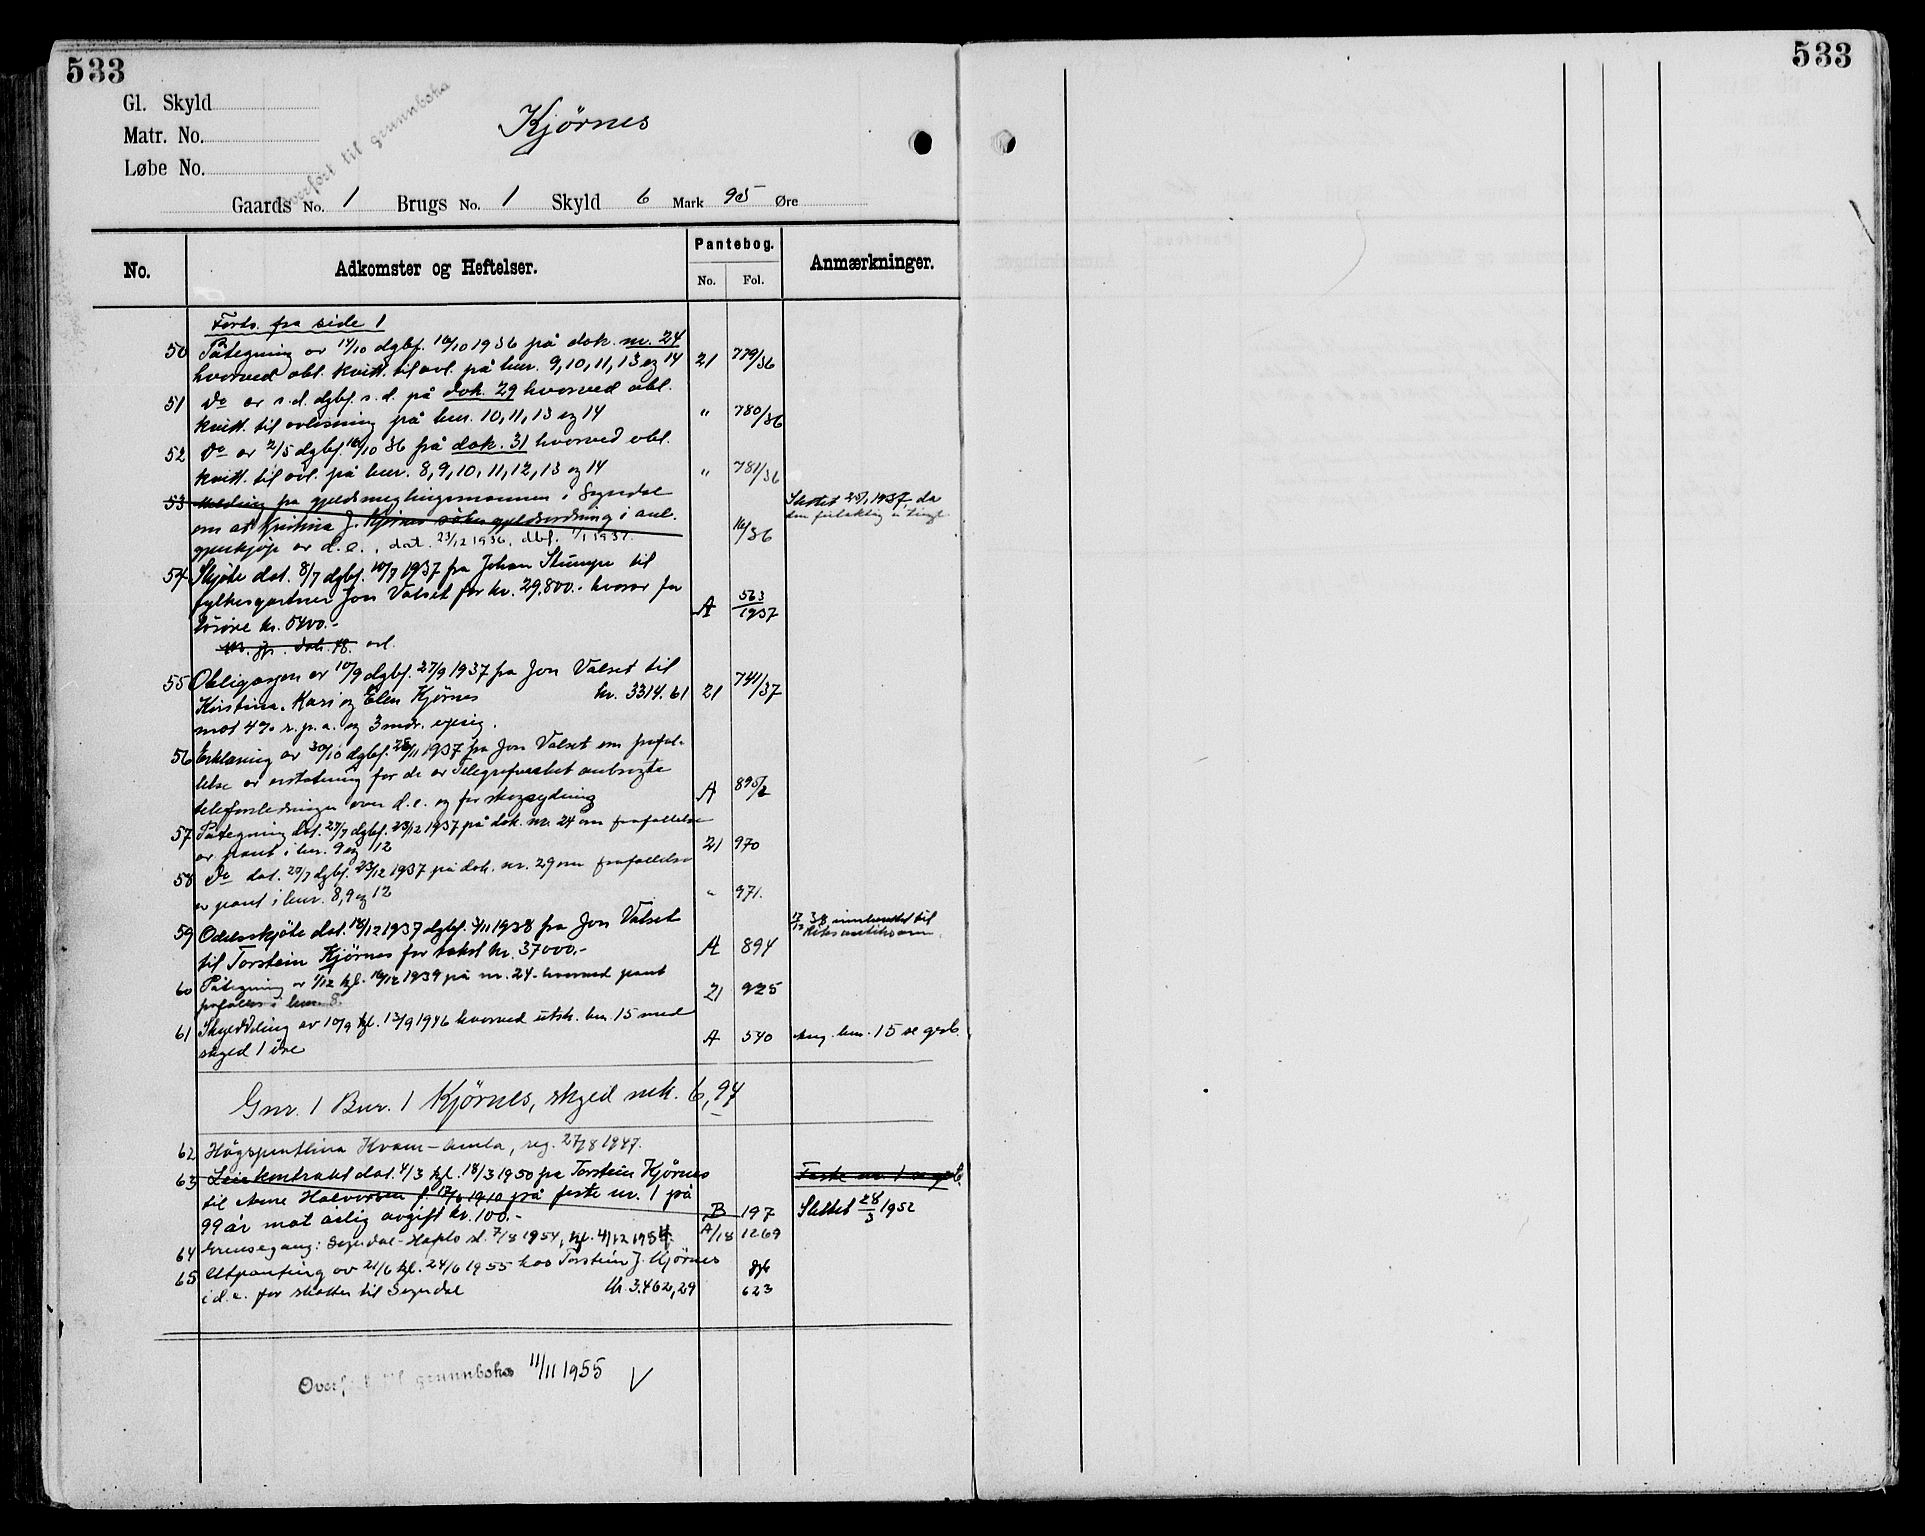 533
533
Gl. Skyld
Matr. No.
Løbe No.
Overført til grunnboka
Kjørnes
Gaards No. 1 Brugs No. 1 Skyld 6 Mark 95 Øre
No.
Adkomster og Heftelser.
Pantebog.
No. Fol.
Anmærkninger.
Forts. fra side 1
50 Påtegning av 14/10 dgbf. 16/10 1936 på dok. nr. 24
hvorved obl. kvitt. til avl. på bnr. 9, 10, 11, 13 og 14 21 779/36
51 Do av s.d. dgbf. s.d. på dok. 29 hvorved obl.
kvitt. til avlesning på bnr. 10, 11, 13 og 14 " 780/36
52 Do av 2/5 dgbf. 16/10 36 på dok. 31 hvorved obl.
kvitt. til avl. på bnr. 8, 9, 10, 11, 12, 13 og 14 " 781/36
53 Melding fra gjeldsmeglingsmannen i Sogndal
om at Kristina J. Kjørnes søker gjeldsordning i anl.
av d.e., dat. 23/12 1936, dbf. 1/1 1937. 16/36
Slettet 25/1 1937, da
54 Skjøte dat. 8/7 dgbf. 10/7 1937 fra Johan Stumpe til
fylkesgartner Jon Valset for kr. 29.800.- hvorav for
løsøre kr. 5400.- A 563/1937
55 Obligasjon av 10/9 dgbf. 27/9 1937 fra Jon Valset til
Kristina, Kari og Elen Kjørnes kr. 3314.61 21 741/37
mot 4% r. p. a. og 3 mdr. opsig.
56 Erklæring av 30/10 dgbf. 25/11 1937 fra Jon Valset om frafal-
lelse av erstatning for de av Telegrafverket anbragte
telefonledninger over d.e. og for skogrydning A 895/2
57 Påtegning dat. 27/7 dgbf. 23/12 1937 på dok. nr. 24 om frafallelse
av pant i bnr. 9 og 12 21 970
58 Do dat. 29/7 dgbf. 23/12 1937 på dok. nr. 29 om frafallelse
av pant i bnr. 8, 9 og 12 " 971.
59 Odelsskjøte dat. 18/12 1937 dgbf. 3/1 1938 fra Jon Valset
til Torstein Kjørnes for takst kr. 37000.- A 894
60 Påtegning av 1/12 tgl. 16/12 1939 på nr. 24. hvorved pant
frafalles i bnr. 8. 21 925
61 Skylddeling av 10/9 tgl. 13/9 1946 hvorved utsk. bnr. 15 med
skyld 1 øre A 540 Ang. bnr. 15 se grb.
Gnr. 1 Bnr. 1 Kjørnes, skyld mrk. 6,94
62 Høgspentlina Kvam – Amla, reg. 27/8 1947.
63 Leiekontrakt dat. 4/3 tgl. 18/3 1950 fra Torstein Kjørnes
til Arne Halvorsen f. 17/6 1910 på feste nr. 1 på
99 år mot årlig avgift kr. 100.- B 197
Feste nr. 1
Slettet 28/3 1952
64 Grensegang: Sogndal-Hafslo sl. 7/8 1954, tgl. 4/12 1954. A/18 1269
65 Utpanting av 21/6 tgl. 24/6 1955 hos Torstein J. Kjørnes
i d.e. for skatter til Sogndal kr. 3.462,29 dgb 623
Overført til grunnboka 11/11 1955 V